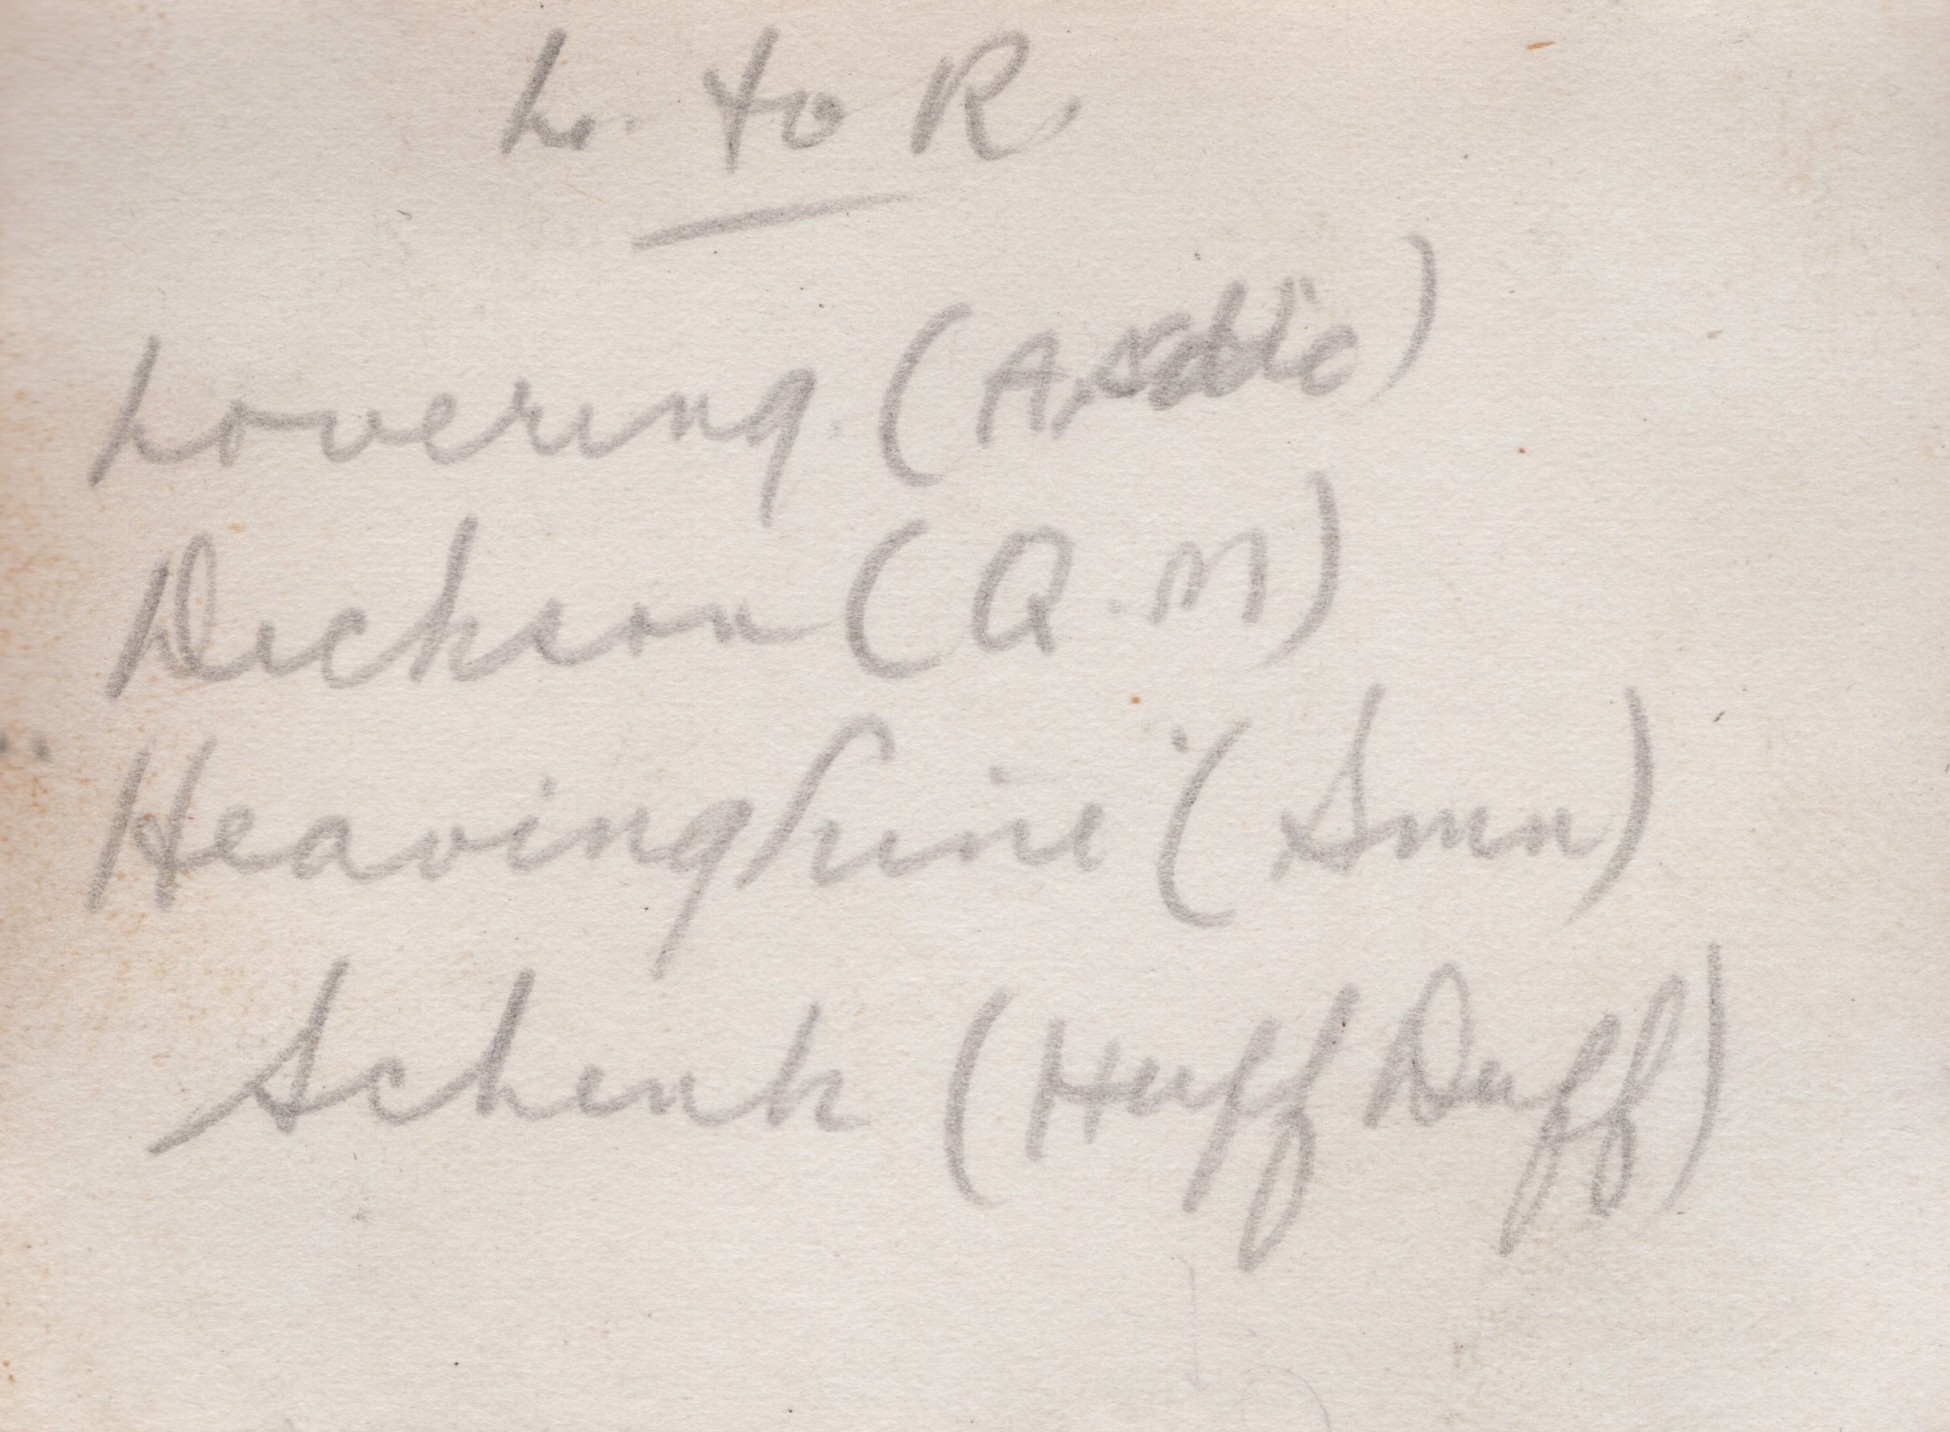 L. to R.
Lovering (Asdic)
Dickson (Q.M)
Heavingline (Smn)
Schenk (Huff Duff)